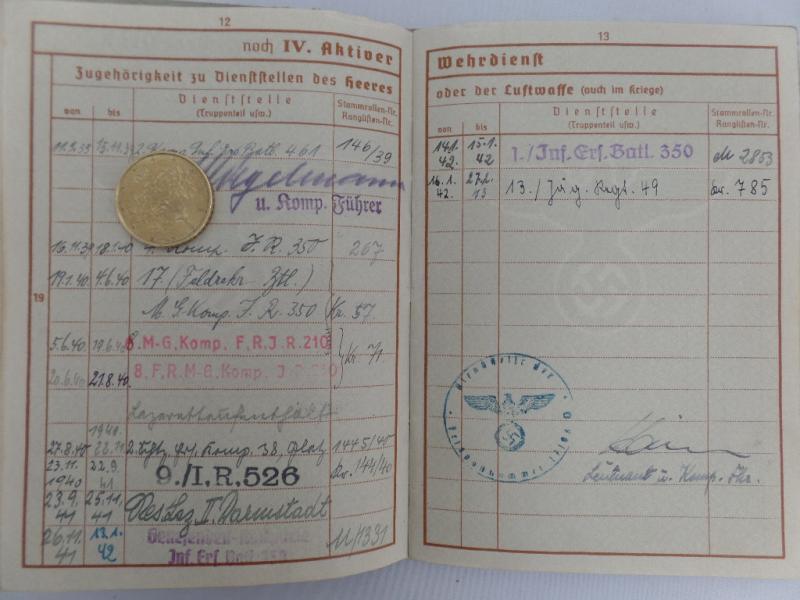 12
noch IV. Aktiver
Zugehörigkeit zu Dienststellen des Heeres
von bis Dienststelle (Truppenteil usw.) Stammrollen-Nr. Ranglisten-Nr.
461 146/39
u. Komp. Führer
Komp. I.R. 350 267
19.1.40 4.6.40 17. (Feldrekr.
19 M.G.Komp. I.R. 350 Kr. 57
5.6.40 8.M-G.Komp. F.R.J.R.210
20.6.40 21.8.40 8.F.R.M-G.Komp. J.R.210 Kr. 71
Lazarettaufenthalt
1940
27.8.40 22.11 Komp. 38, 1445/40
23.11. 22.9. 9./I.R.526 144/40
1940 41
23.9. 25.11. Res. Laz. II Darmstadt
41 41
26.11. 13.1. Genesenden-Kompanie 11/1391
41 42 Inf. Ers. Batl. 350
13
Wehrdienst
oder der Luftwaffe (auch im Kriege)
von bis Dienststelle (Truppenteil usw.) Stammrollen-Nr. Ranglisten-Nr.
14.1. 15.1. 1./Inf. Ers. Batl. 350 2853
42 42
16.1. 13./Jäg. Regt. 49 785
42.
Dienststelle der
Feldpostnummer
Leutnant u. Komp. Fhr.